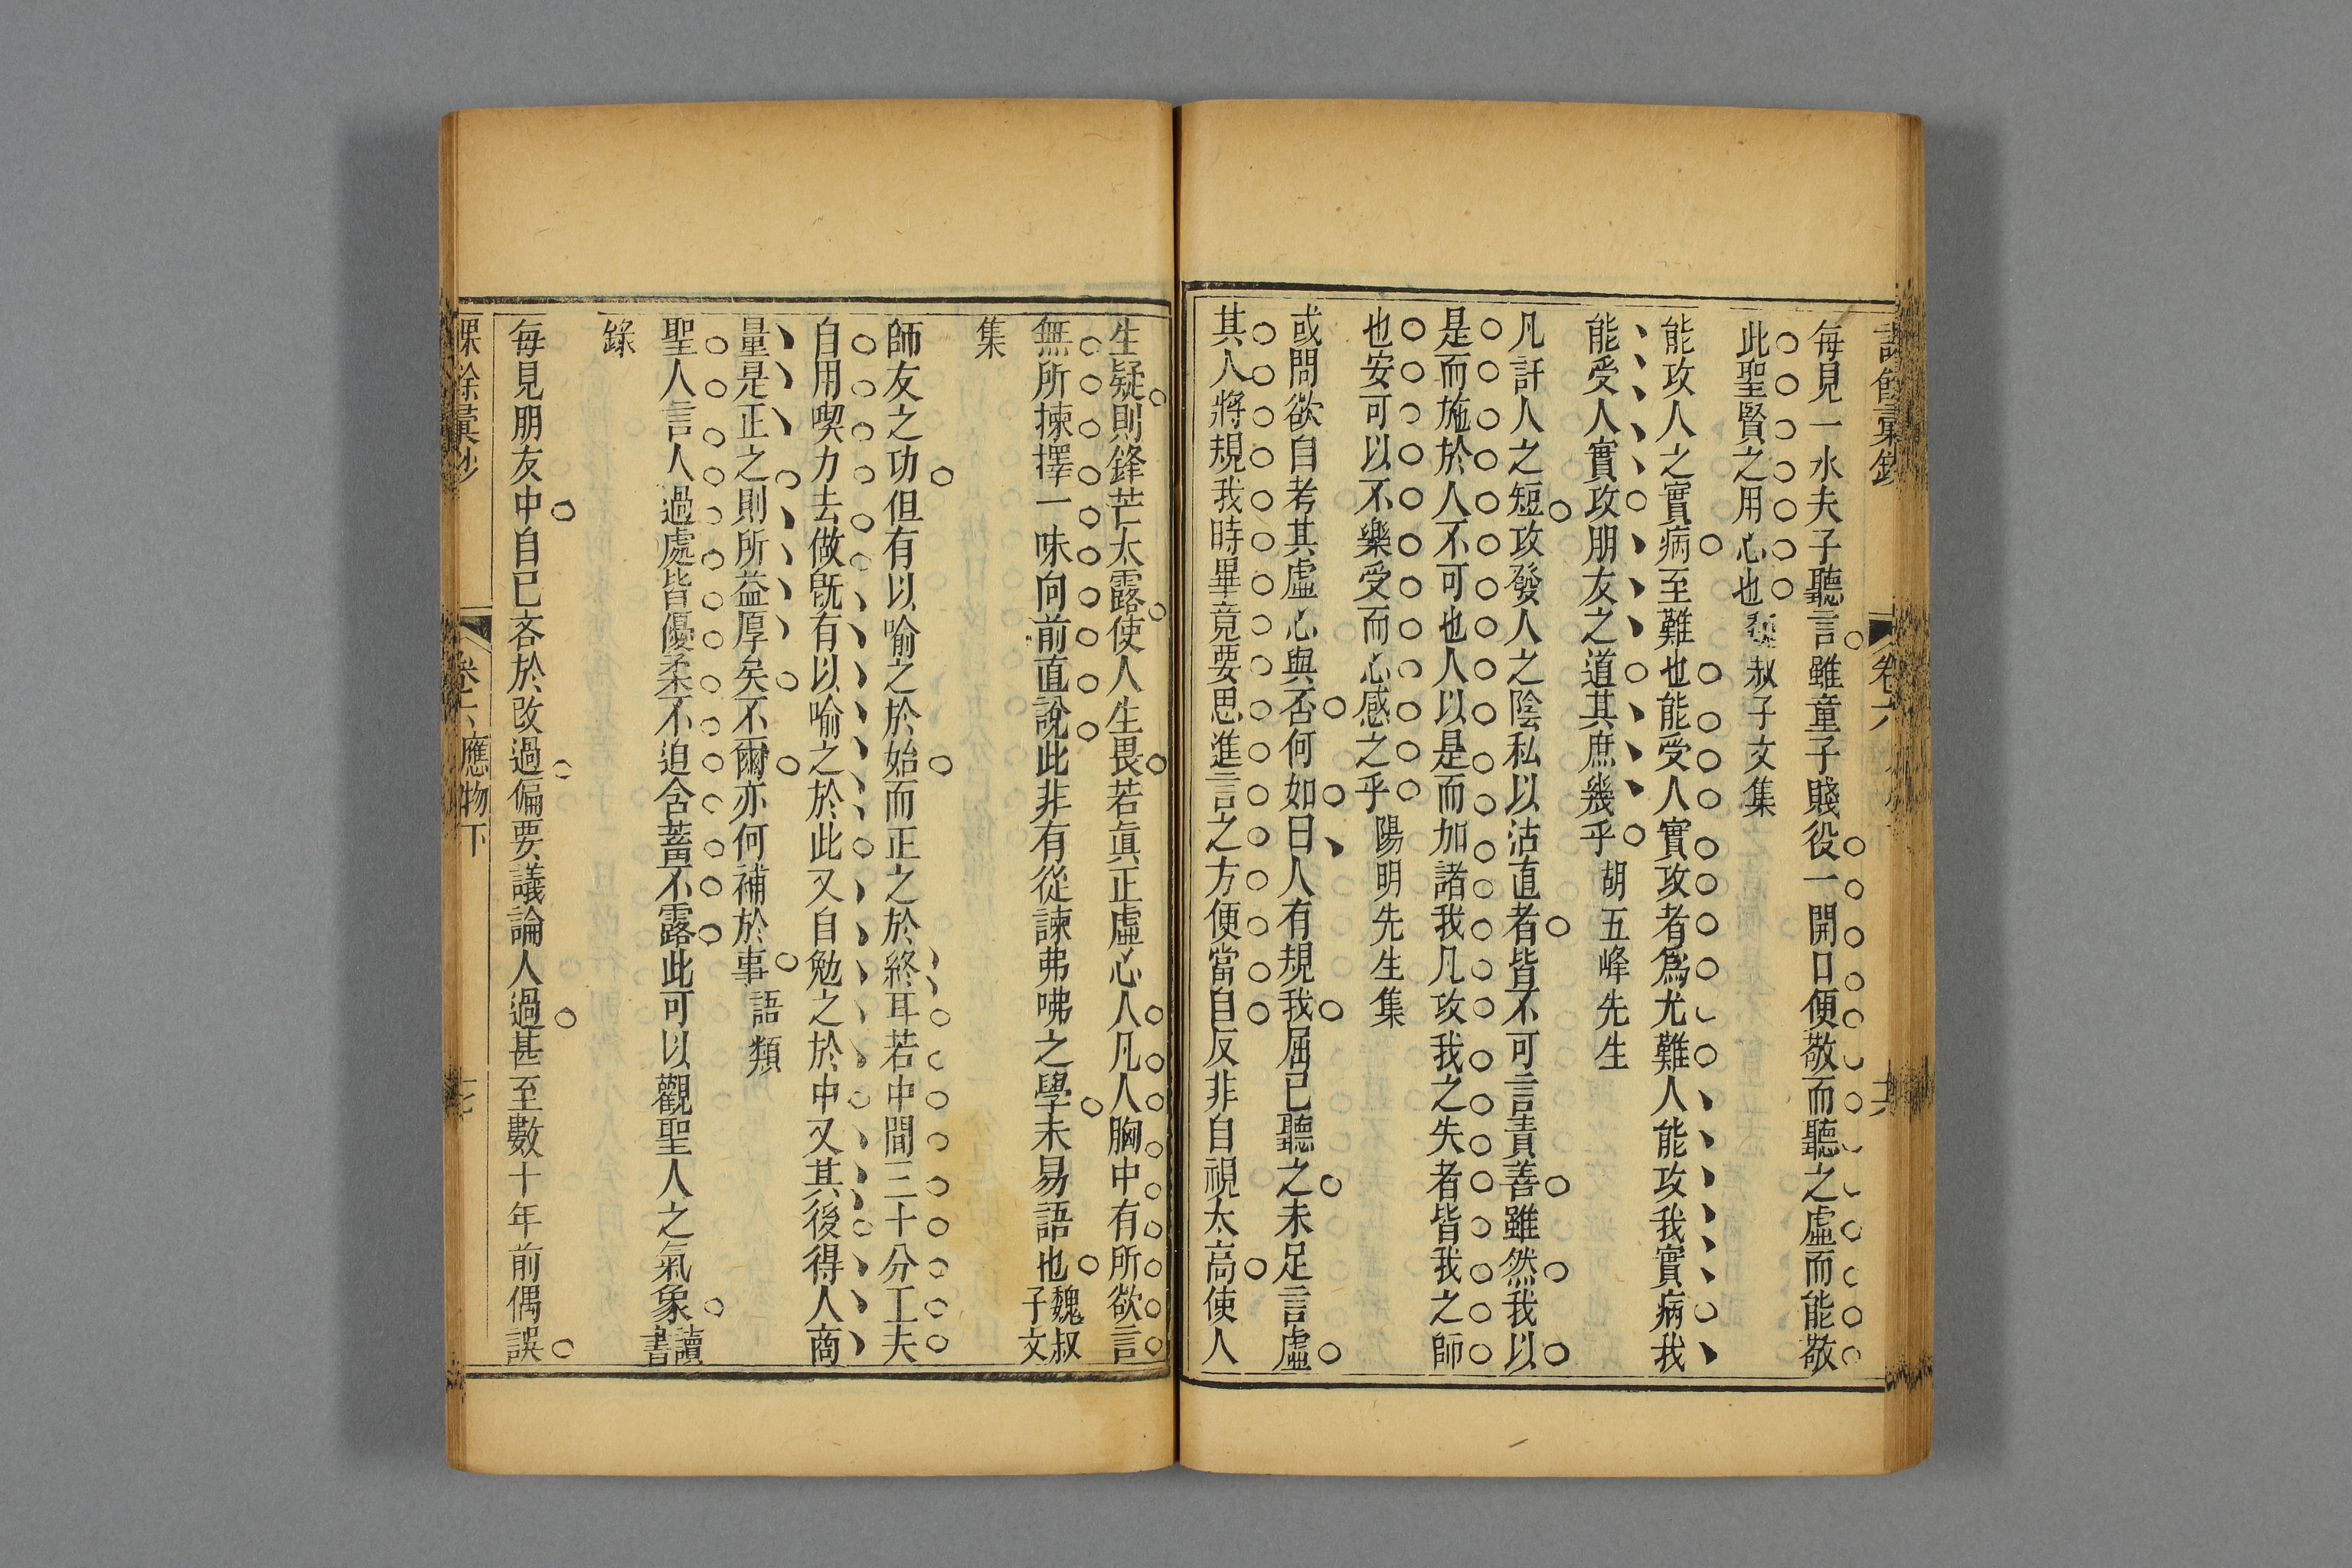 每見一水夫子聽言雖童子賤役一開口便敬而聽之虛而能敬
此聖賢之用心也魏叔子文集
能攻人之實病至難也能受人實攻者爲尤難人能攻我實病我
能受人實攻朋友之道其庶幾乎胡五峰先生
凡訐人之短攻發人之陰私以沽直者皆不可言責善雖然我以
是而施於人不可也人以是而加諸我凡攻我之失者皆我之師
也安可以不樂受而心感之乎陽明先生集
或問欲自考其虛心與否何如曰人有規我屈己聽之未足言虛
其人將規我時畢竟要思進言之方便當自反非自視太高使人
生疑則鋒芒太露使人生畏若眞正虛心人凡人胸中有所欲言
無所揀擇一味向前直說此非有從諫弗咈之學未易語也魏叔子文
集
師友之功但有以喻之於始而正之於終耳若中間三十分工夫
自用喫力去做旣有以喻之於此又自勉之於中又其後得人商
量是正之則所益厚矣不爾亦何補於事語類
聖人言人過處皆優柔不迫含蓄不露此可以觀聖人之氣象讀書
錄
每見朋友中自已吝於改過偏要議論人過甚至數十年前偶誤
卷六 應物下